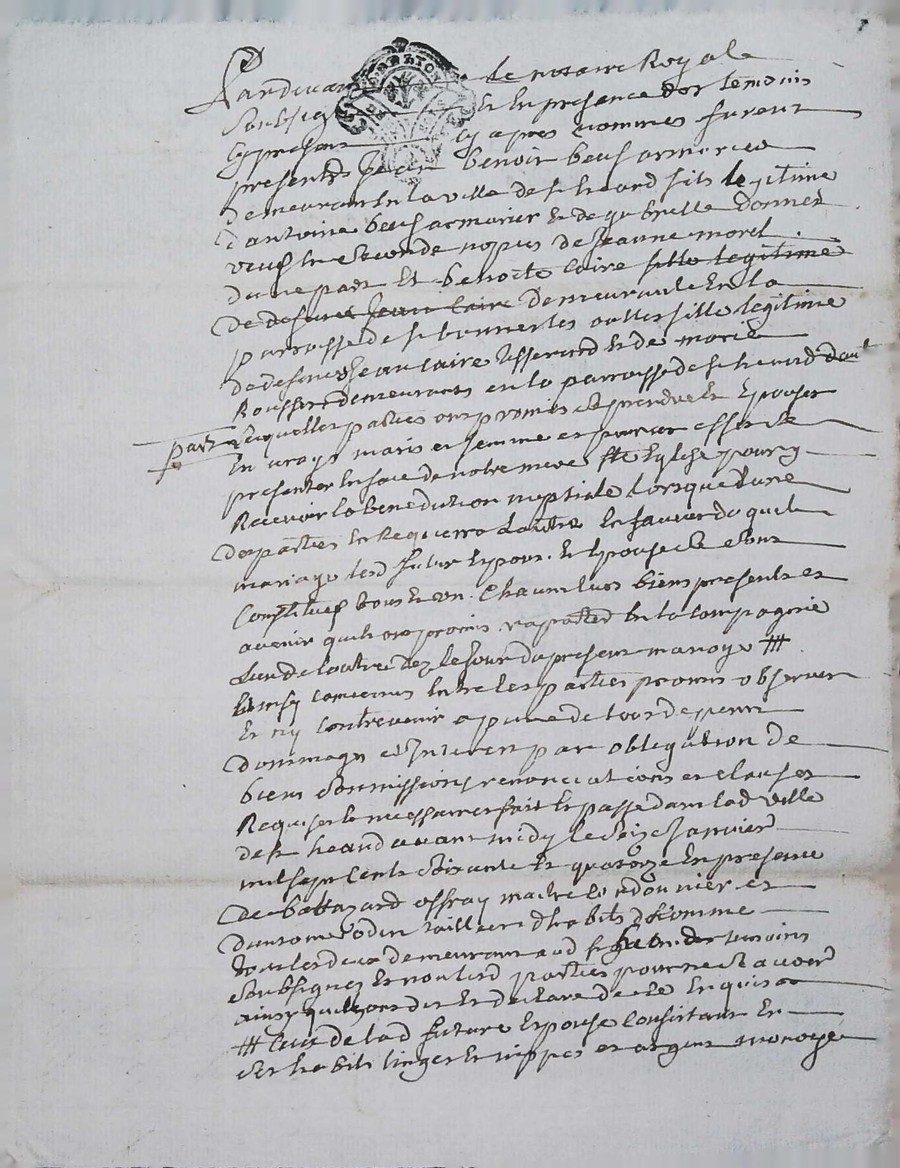 Pardevant le notaire Royal
soubsigné Et En presence des temoins
cy apres nommes furent
presents Jean benoir
demeurant En la ville de st heand fils legitime
d'antoine armurier Et de
veuf En seconde nopces de Jeanne morel
d'une part Et benoite Caire fille legitime
de defunct Jean Caire demeurante En la
parroisse de st bonnet les oulles fille legitime
de defunct Jean Caire tisserand Et de marie
Rousset demeurants en la parroisse de st heand d'aut
part Lesquelles parties ont promis se prendre Et Epouser
En vrays maris et femme et pour cet effet se
presenter En face de notre mere ste Eglise pour y
Recevoir la benediction nuptiale lorsque l'une
des parties En Requerra L'autre En faveur duquel
mariage lesd futur Epoux Et Epouse se sont
Constitues tous Et un Chacun leurs biens presents et
avenir quils ont promis raporter En la compagnie
L'un de l'autre dez le jour du present mariage #
Ainsy convenus Entre les parties promis observer
Et n'y Contrevenir a peine de tous depens
dommages et Interets par obligation de
biens soumissions renonciations et clauses
Requises le necessaire fait Et passé dans lad ville
de st heand avant midy le seize Janvier
mil sept Cents soixante Et quatorze En presence
de baltazard offray maitre Cordonnier et
d'antoine odin tailleur d'habits d'homme
tous les deux demeurants aud st heand temoins
soubsignes Et non lesd parties pour ne sçavoir
ainsy quils ont dit Et declaré de ce Enquis
# Ceux de lad future Epouse Consistant En
ses habits linges Et nippes et argent monoyé